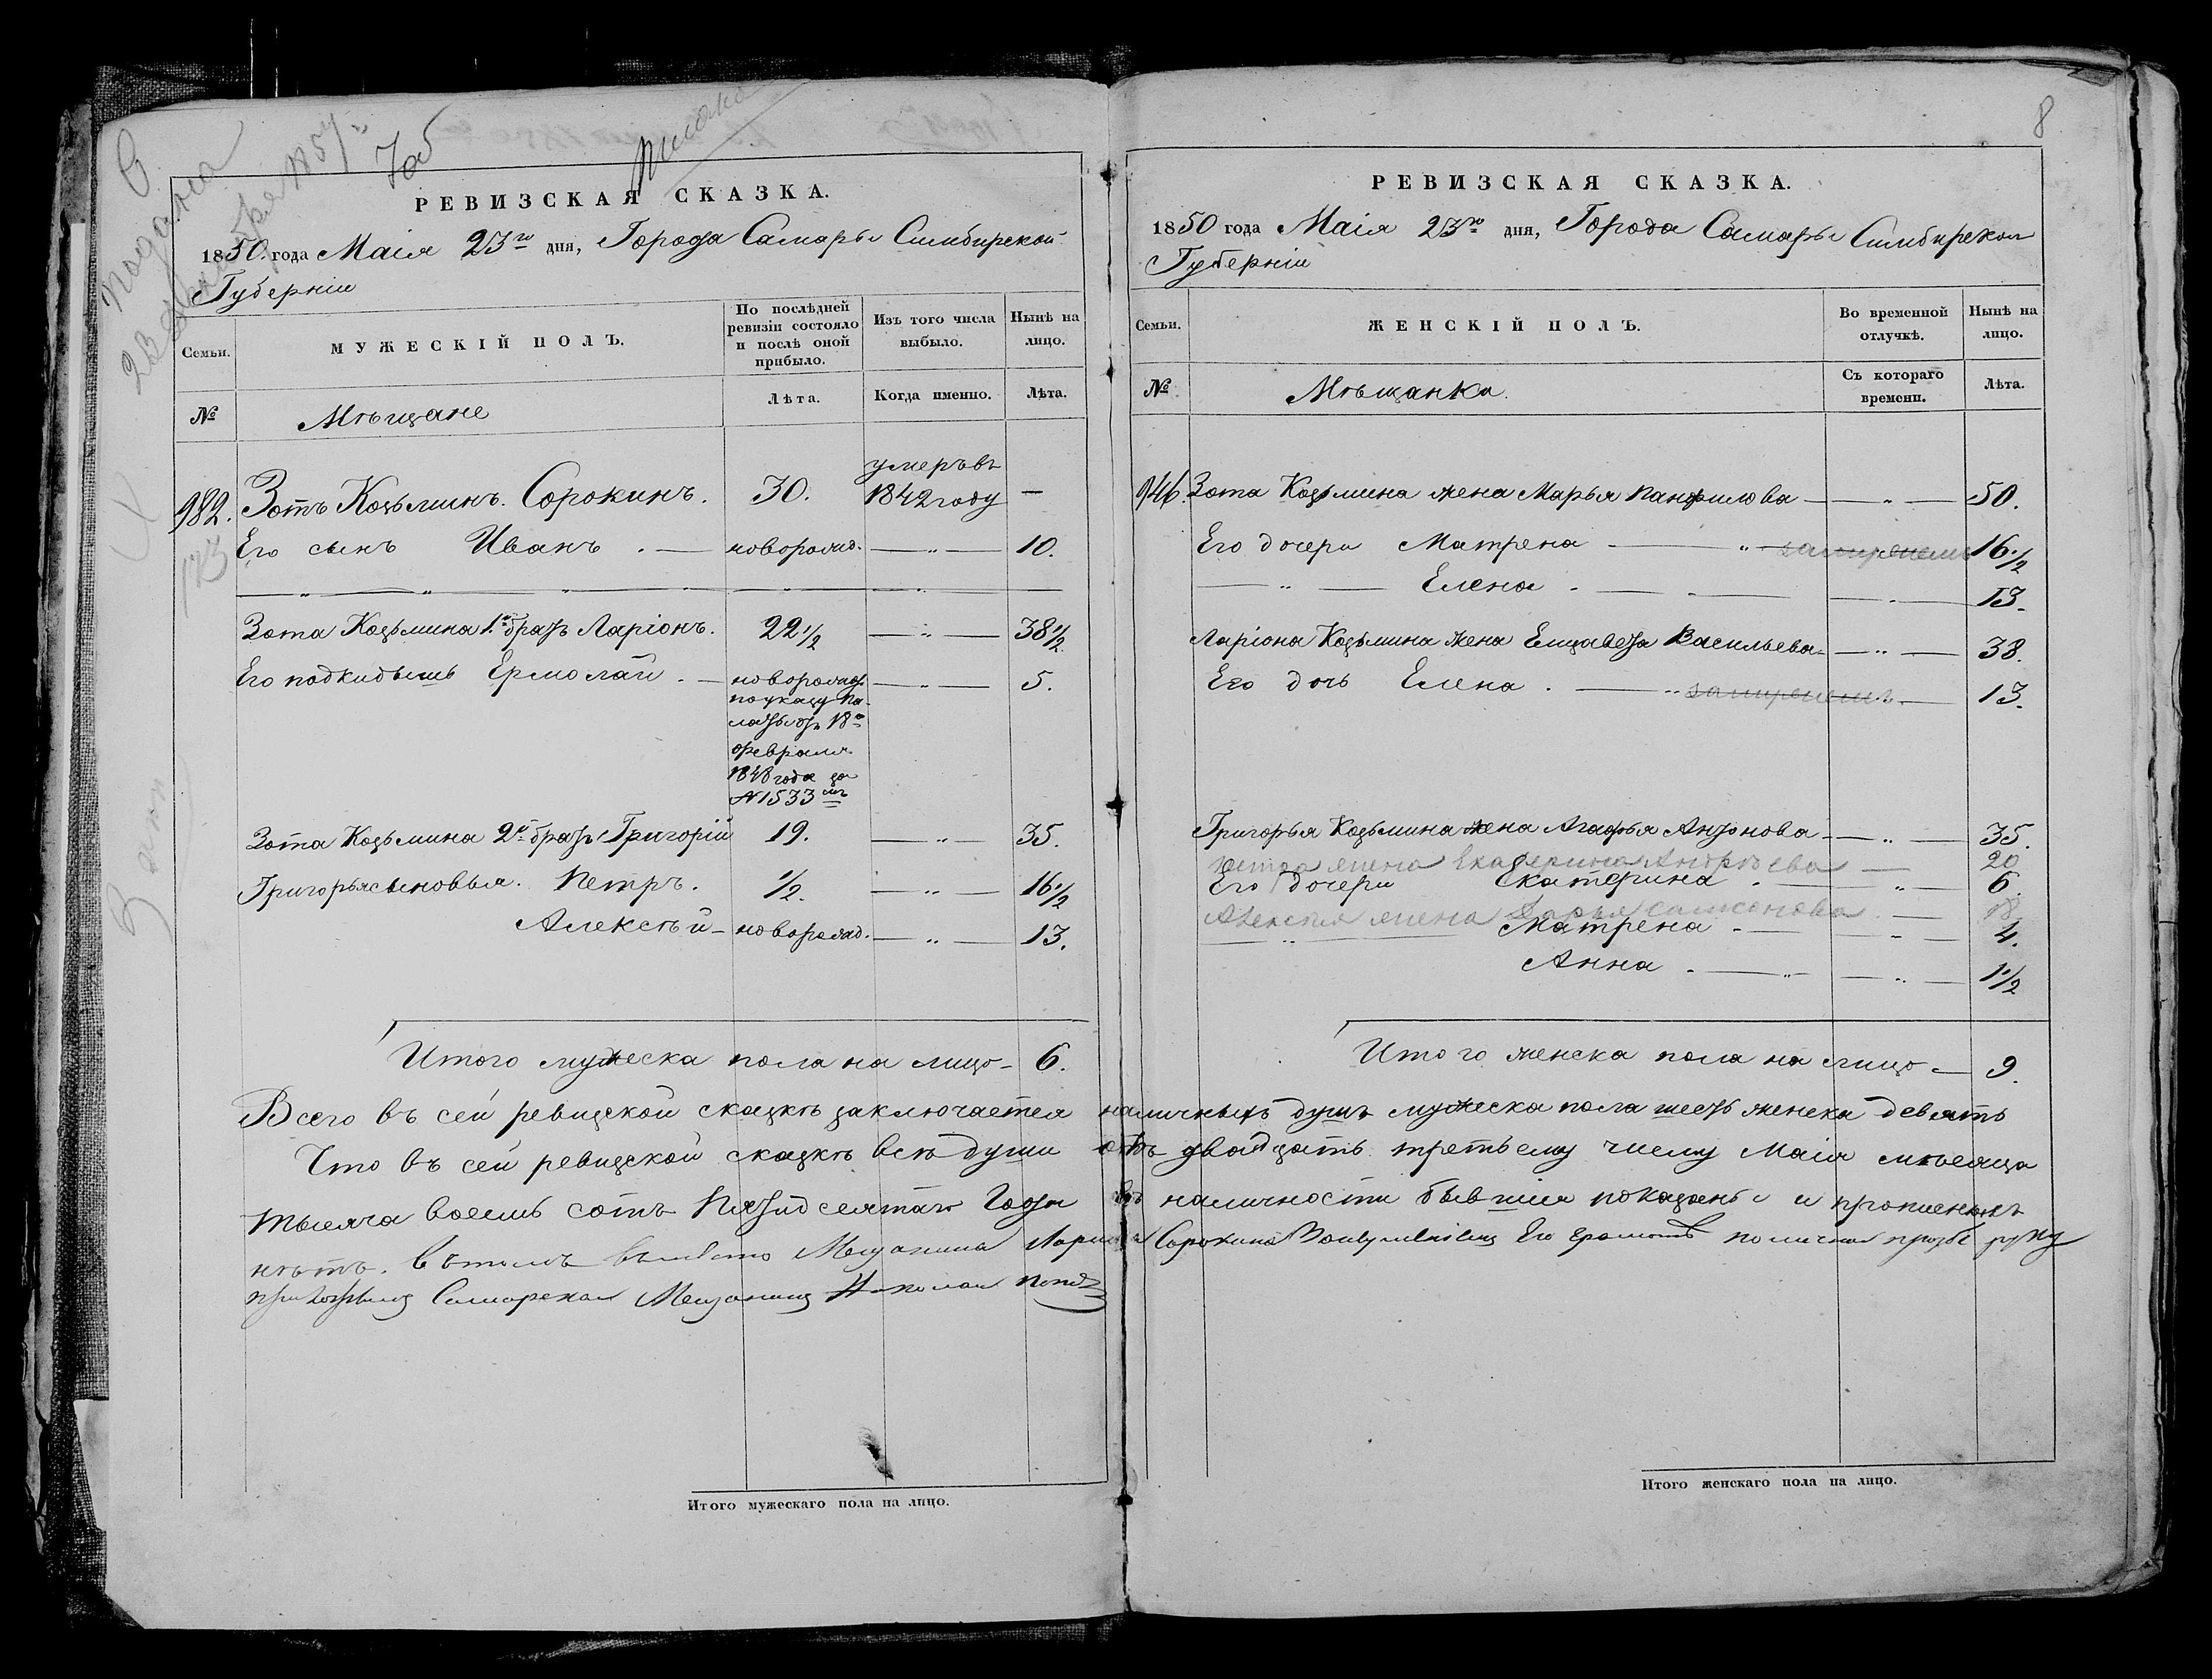 8
Подана
РЕВИЗСКАЯ СКАЗКА.
1850. года Маія 23го дня, Города Самары Симбирской
Губерніи
Семьи.
МУЖЕСКІЙ ПОЛЪ.
По послѣдней ревизіи состояло и послѣ оной прибыло.
Изъ того числа выбыло.
Нынѣ на лицо.
№
Мѣщане
Лѣта.
Когда именно.
Лѣта.
982. Зотъ Козьминъ. Сорокинъ. 30. умеръ въ 1842 году —
Его сынъ Иванъ . — новорожд. — „ — 10.
Зота Козьмина 1й братъ Ларіонъ. 22 1/2 — „ — 38 1/2
Его подкидышъ Ермолай . — новорожд. — „ — 5.
по указу Па-
латы отъ 18го
февраля
1848 года за
№ 1533мъ
Зота Козьмина 2й братъ Григорій 19. — „ — 35.
Григорья сыновья. Петръ. 1/2. — „ — 16 1/2
Алексѣй — новорожд. — „ — 13.
Итого мужеска пола на лицо — 6.
РЕВИЗСКАЯ СКАЗКА.
1850 года Маія 23го дня, Города Самары Симбирской
Губерніи
Семьи.
ЖЕНСКІЙ ПОЛЪ.
Во временной отлучкѣ.
Нынѣ на лицо.
№
Мѣщанка.
Съ котораго времени.
Лѣта.
946. Зота Козьмина жена Марья Панфилова — „ — 50.
Его дочери Матрена — „ — замужемъ 16 1/2
— „ — Елена . — „ — 13.
Ларіона Козьмина жена Елизавета Васильева — „ — 38.
Его дочь Елена . — „ замужемъ — 13.
Григорья Козьмина жена Агафья Антонова — „ — 35.
Петра жена Екатерина Андреева — 20
Его дочери Екатерина . — „ — 6.
Алексѣя жена Дарья Самсонова . — 18
— „ — Матрена . — „ — 4.
Анна . — „ — „ — 1 1/2
Итого женска пола на лицо — 9.
Всего въ сей ревизской сказкѣ заключается наличныхъ душъ мужеска пола шесть женска девять
Что въ сей ревизской сказкѣ всѣ души къ двадцать третьему числу Маія мѣсяца
тысяча восемь сотъ Пятидесятаго Года въ наличности бывшія показаны и прописныхъ
нѣтъ. въ томъ вместо Мещанина Лариона Сорокина Его грамоте по личной прозбе руку
Самарской Мещанинъ Николай
Итого мужескаго пола на лицо.
Итого женскаго пола на лицо.